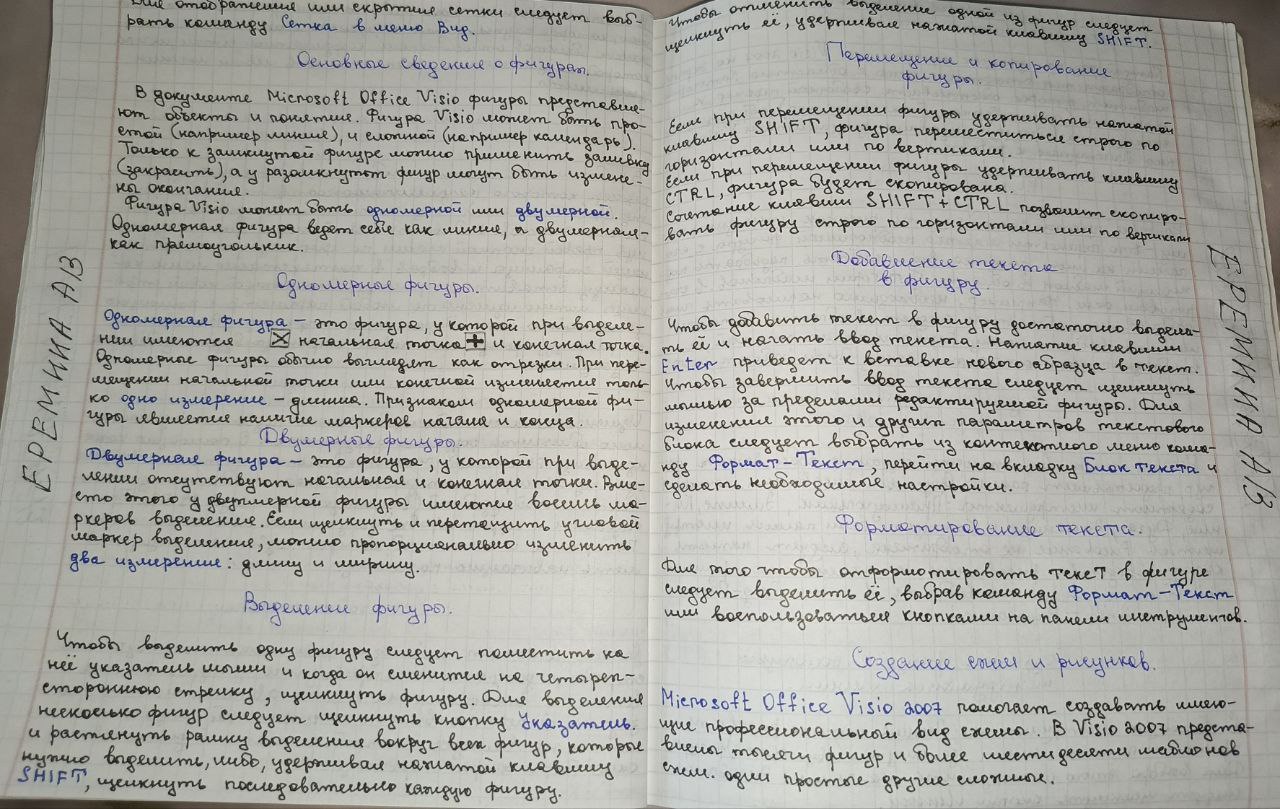 Для отображения или скрытие сетки следует выб-
рать команду Сетка в меню Вид.
Основные сведение о фигурах.
В документе Microsoft Office Visio фигуры представля-
ют объекты и понятие. Фигура Visio может быть про-
стой (например линие), и сложной (например календарь).
Только к замкнутой фигуре можно применить заливку
(закрасить), а у разомкнутых фигур могут быть измене-
ны окончание.
Фигура Visio может быть одномерной или двумерной.
Одномерная фигура ведет себе как линие, а двумерная-
как прямоугольник.
Одномерные фигуры.
Одномерная фигура – это фигура, у которой при выделе-
нии имеются начальная точка и конечная точка.
Одномерные фигуры обычно выглядят как отрезки. При пере-
мещении начальной точки или конечной изменяется толь-
ко одно измерение – длинна. Признаком одномерной фи-
гуры является наличие маркеров начала и конца.
Двумерные фигуры.
Двумерная фигура – это фигура, у которой при выде-
лении отсутствуют начальная и конечная точки. Вме-
сто этого у двухмерной фигуры имеются восемь ма-
ркеров выделение. Если щелкнуть и перетащить угловой
маркер выделение, можно пропорционально изменить
два измерение: длину и ширину.
Выделение фигуры.
Чтобы выделить одну фигуру следует поместить на
неё указатель мыши и когда он сменится на четырех-
стороннюю стрелку, щелкнуть фигуру. Для выделения
несколько фигур следует щелкнуть кнопку Указатель.
и растянуть рамку выделение вокруг всех фигур, которые
нужно выделить, либо, удерживая нажатой клавишу
SHIFT, щелкнуть последовательно каждую фигуру.
ЕРЕМИНА А13
Чтобы отменить выделение одной из фигур следует
щелкнуть её, удерживая нажатой клавишу SHIFT.
Перемещение и копирование
фигуры.
Если при перемещении фигуры удерживать нажатой
клавишу SHIFT, фигура переместиться строго по
горизонтали или по вертикали.
Если при перемещении фигуры удерживать клавишу
CTRL, фигура будет скопирована.
Сочетание клавиш SHIFT+CTRL позволит скопиро-
вать фигуру строго по горизонтали или по вертикали
Добавление текста
в фигуру.
Чтобы добавить текст в фигуру достаточно выдели-
ть её и начать ввод текста. Нажатие клавиши
Enter приведет к вставке нового образца в текст.
Чтобы завершить ввод текста следует щелкнуть
мышью за пределами редактируемой фигуры. Для
изменение этого и других параметров текстового
блока следует выбрать из контекстного меню кома-
нду Формат–Текст, перейти на вкладку Блок текста и
сделать необходимые настройки.
Форматирование текста.
Для того чтобы отформотировать текст в фигуре
следует выделить её, выбрав команду Формат–Текст
или воспользоваться кнопками на панели инструментов.
Создание схем и рисунков.
Microsoft Office Visio 2007 помогает создавать имею-
щие профессиональный вид схемы. В Visio 2007 предста-
влены тысячи фигур и более шестидесяти шаблонов
схем. одни простые другие сложные.
ЕРЕМИНА А13